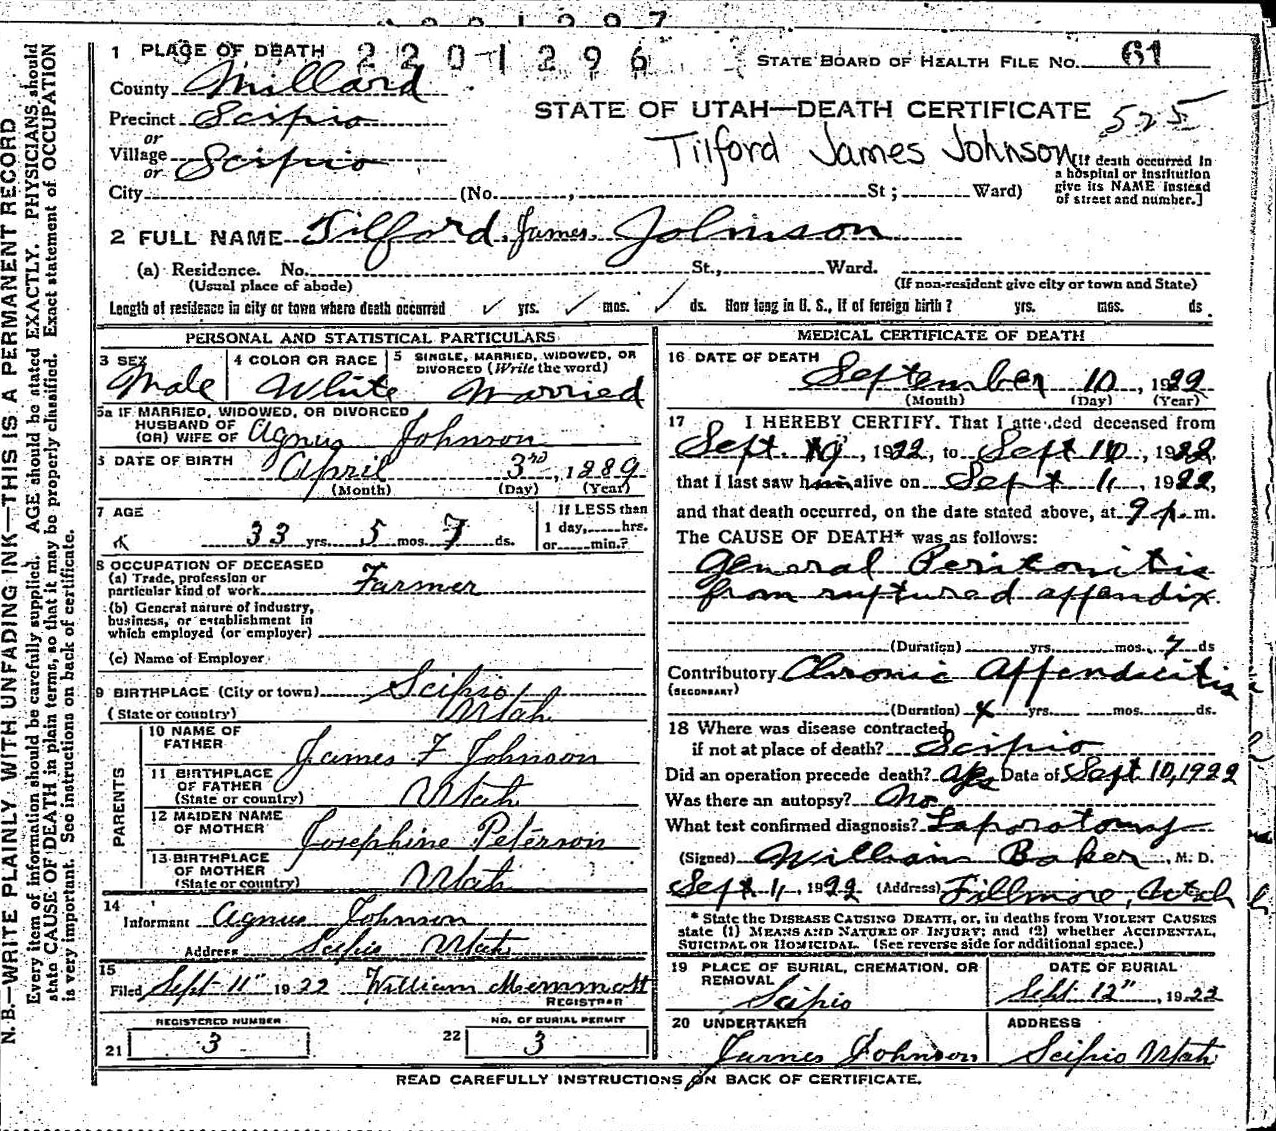 1 PLACE OF DEATH 2201296 STATE BOARD OF HEALTH FILE NO. 61
County Millard
STATE OF UTAH—DEATH CERTIFICATE 525
Precinct Scipio
or
Tilford James Johnson
Village Scipio
or
City (No. , St; Ward)
[If death occurred in
a hospital or institution
give its NAME instead
of street and number.]
2 FULL NAME Tilford James Johnson
(a) Residence. No. St., Ward.
(Usual place of abode) (If non-resident give city or town and State)
Length of residence in city or town where death occurred ✓ yrs. ✓ mos. ✓ ds. How long in U. S., if of foreign birth? yrs. mos. ds.
PERSONAL AND STATISTICAL PARTICULARS
3 SEX
Male
4 COLOR OR RACE
White
5 SINGLE, MARRIED, WIDOWED, OR
DIVORCED (Write the word)
Married
5a IF MARRIED, WIDOWED, OR DIVORCED
HUSBAND OF
(OR) WIFE OF Agnus Johnson
DATE OF BIRTH April 3rd, 1889
(Month) (Day) (Year)
7 AGE
33 yrs. 5 mos. 7 ds.
If LESS than
1 day, hrs.
or min.?
8 OCCUPATION OF DECEASED
(a) Trade, profession or
particular kind of work Farmer
(b) General nature of industry,
business, or establishment in
which employed (or employer)
(c) Name of Employer
9 BIRTHPLACE (City or town) Scipio
(State or country) Utah
PARENTS
10 NAME OF
FATHER James F Johnson
11 BIRTHPLACE
OF FATHER
(State or country) Utah
12 MAIDEN NAME
OF MOTHER Josephine Peterson
13 BIRTHPLACE
OF MOTHER
(State or country) Utah
14
Informant Agnus Johnson
Address Scipio Utah
15
Filed Sept 11" 1922 William Memmott
REGISTRAR
REGISTERED NUMBER
21 3
NO. OF BURIAL PERMIT
22 3
MEDICAL CERTIFICATE OF DEATH
16 DATE OF DEATH
September 10, 1922
(Month) (Day) (Year)
17 I HEREBY CERTIFY. That I attended deceased from
Sept 10, 1922, to Sept 10, 1922,
that I last saw him alive on Sept 11, 1922,
and that death occurred, on the date stated above, at 9 p. m.
The CAUSE OF DEATH* was as follows:
General Peritonitis
from ruptured appendix.
(Duration) yrs. mos. 7 ds
Contributory Chronic Appendicitis
(SECONDARY)
(Duration) 4 yrs. mos. ds.
18 Where was disease contracted
if not at place of death? Scipio
Did an operation precede death? yes Date of Sept 10, 1922
Was there an autopsy? No
What test confirmed diagnosis? Laporatomy
(Signed) William Baker, M. D.
Sept 11, 1922 (Address) Fillmore, Utah
* State the DISEASE CAUSING DEATH, or, in deaths from VIOLENT CAUSES
state (1) MEANS AND NATURE OF INJURY; and (2) whether ACCIDENTAL,
SUICIDAL OR HOMICIDAL. (See reverse side for additional space.)
19 PLACE OF BURIAL, CREMATION, OR
REMOVAL
Scipio
DATE OF BURIAL
Sept. 12", 1922
20 UNDERTAKER
James Johnson
ADDRESS
Scipio Utah
READ CAREFULLY INSTRUCTIONS ON BACK OF CERTIFICATE.
N. B.—WRITE PLAINLY WITH UNFADING INK—THIS IS A PERMANENT RECORD
Every item of information should be carefully supplied. AGE should be stated EXACTLY. PHYSICIANS should
state CAUSE OF DEATH in plain terms, so that it may be properly classified. Exact statement of OCCUPATION
is very important. See instructions on back of certificate.